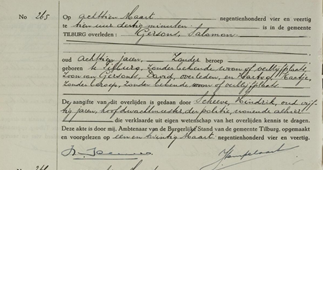 No 265 Op achttien Maart negentienhonderd vier en veertig
te tien ure dertig minuten is in de gemeente
TILBURG overleden: Gersons, Salomon
oud achttien jaren, zonder beroep
geboren te Tilburg, zonder bekende woon of verblijfplaats
zoon van Gersons, David, overleden, en
zonder beroep, zonder bekende woon of verblijfplaats
De aangifte van dit overlijden is gedaan door Scheers, Hendrik, oud
jaren, hoofdwachtmeester der politie, wonende alhier
die verklaarde uit eigen wetenschap van het overlijden kennis te dragen.
Deze akte is door mij, Ambtenaar van den Burgerlijken Stand van de gemeente Tilburg, opgemaakt
en voorgelezen op een en twintig Maart negentienhonderd vier en veertig